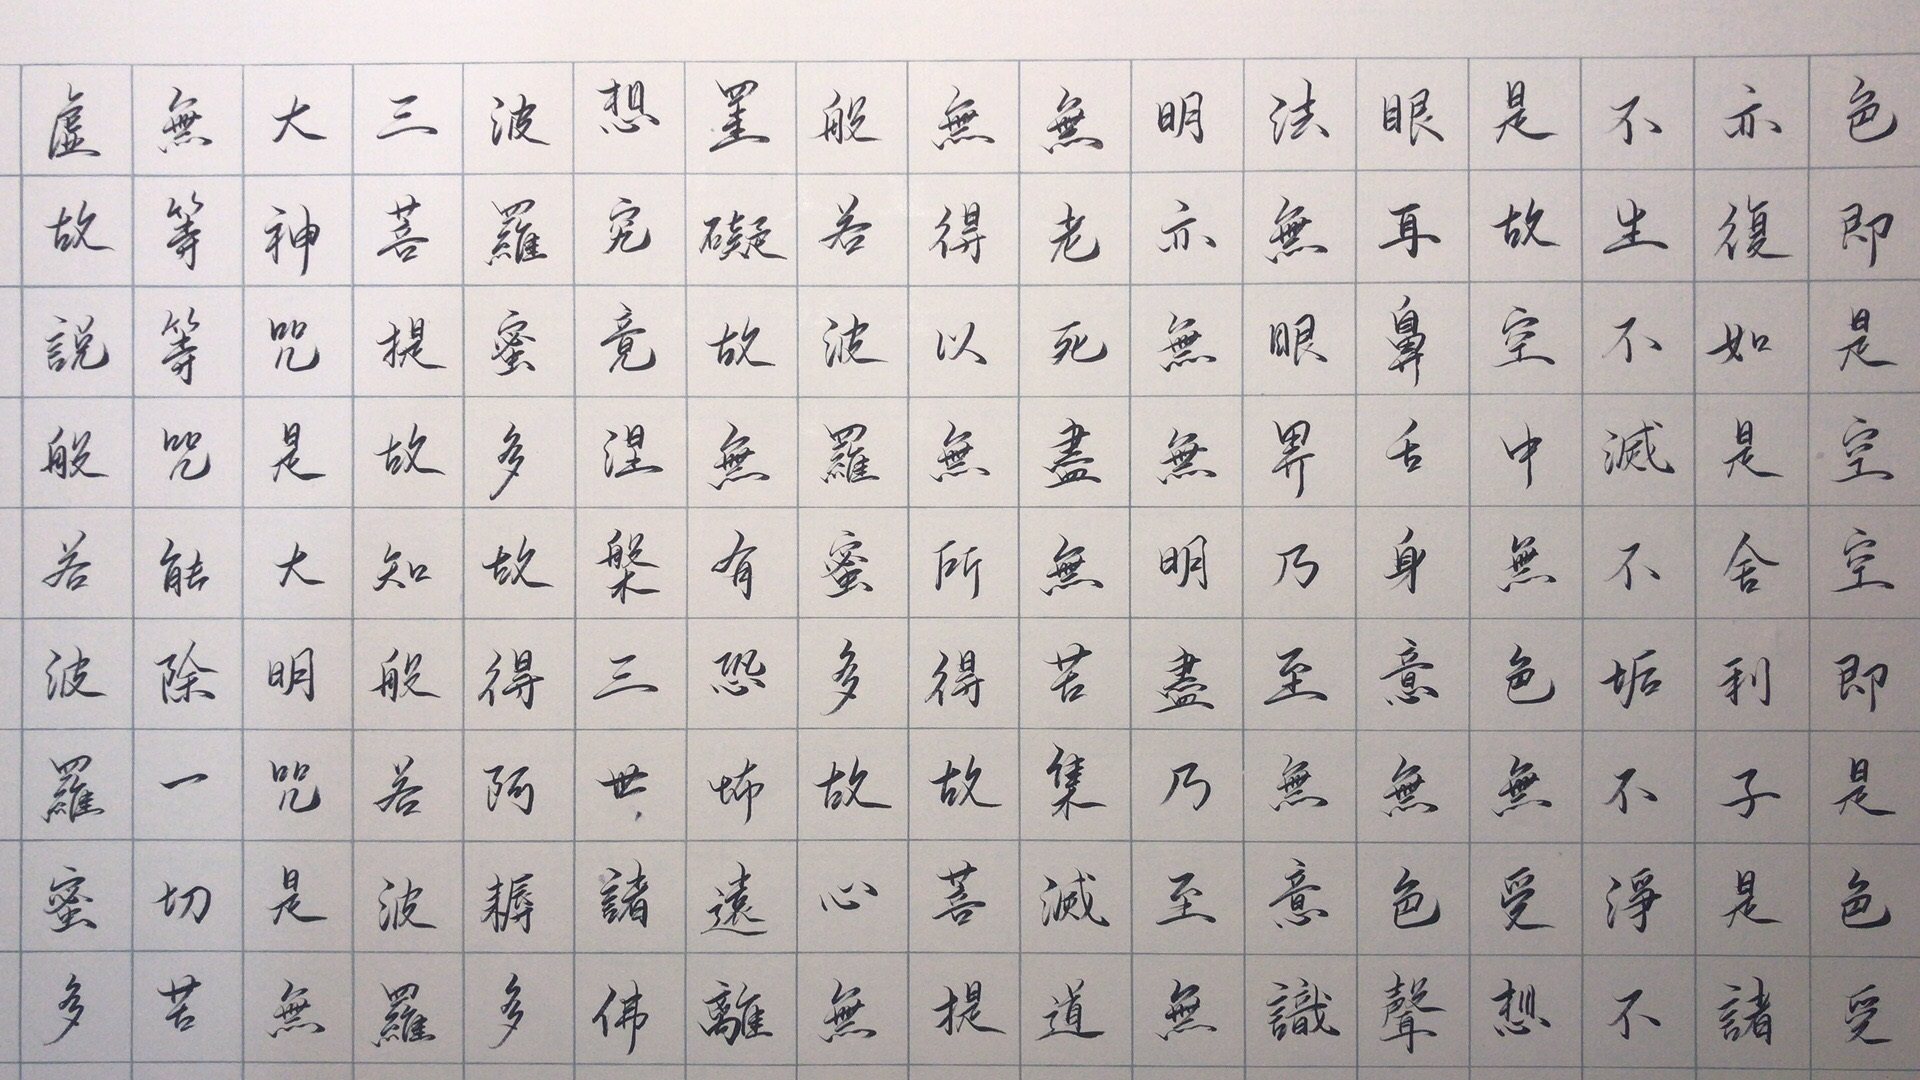 色即是空空即是色受
亦復如是舍利子是諸
不生不滅不垢不淨不
是故空中無色無受想
眼耳鼻舌身意無色聲
法無眼界乃至無意識
明亦無無明盡乃至無
無老死盡無苦集滅道
無得以無所得故菩提
般若波羅蜜多故心無
罣礙故無有恐怖遠離
想究竟涅槃三世諸佛
波羅蜜多故得阿耨多
三菩提故知般若波羅
大神咒是大明咒是無
無等等咒能除一切苦
虛故說般若波羅蜜多